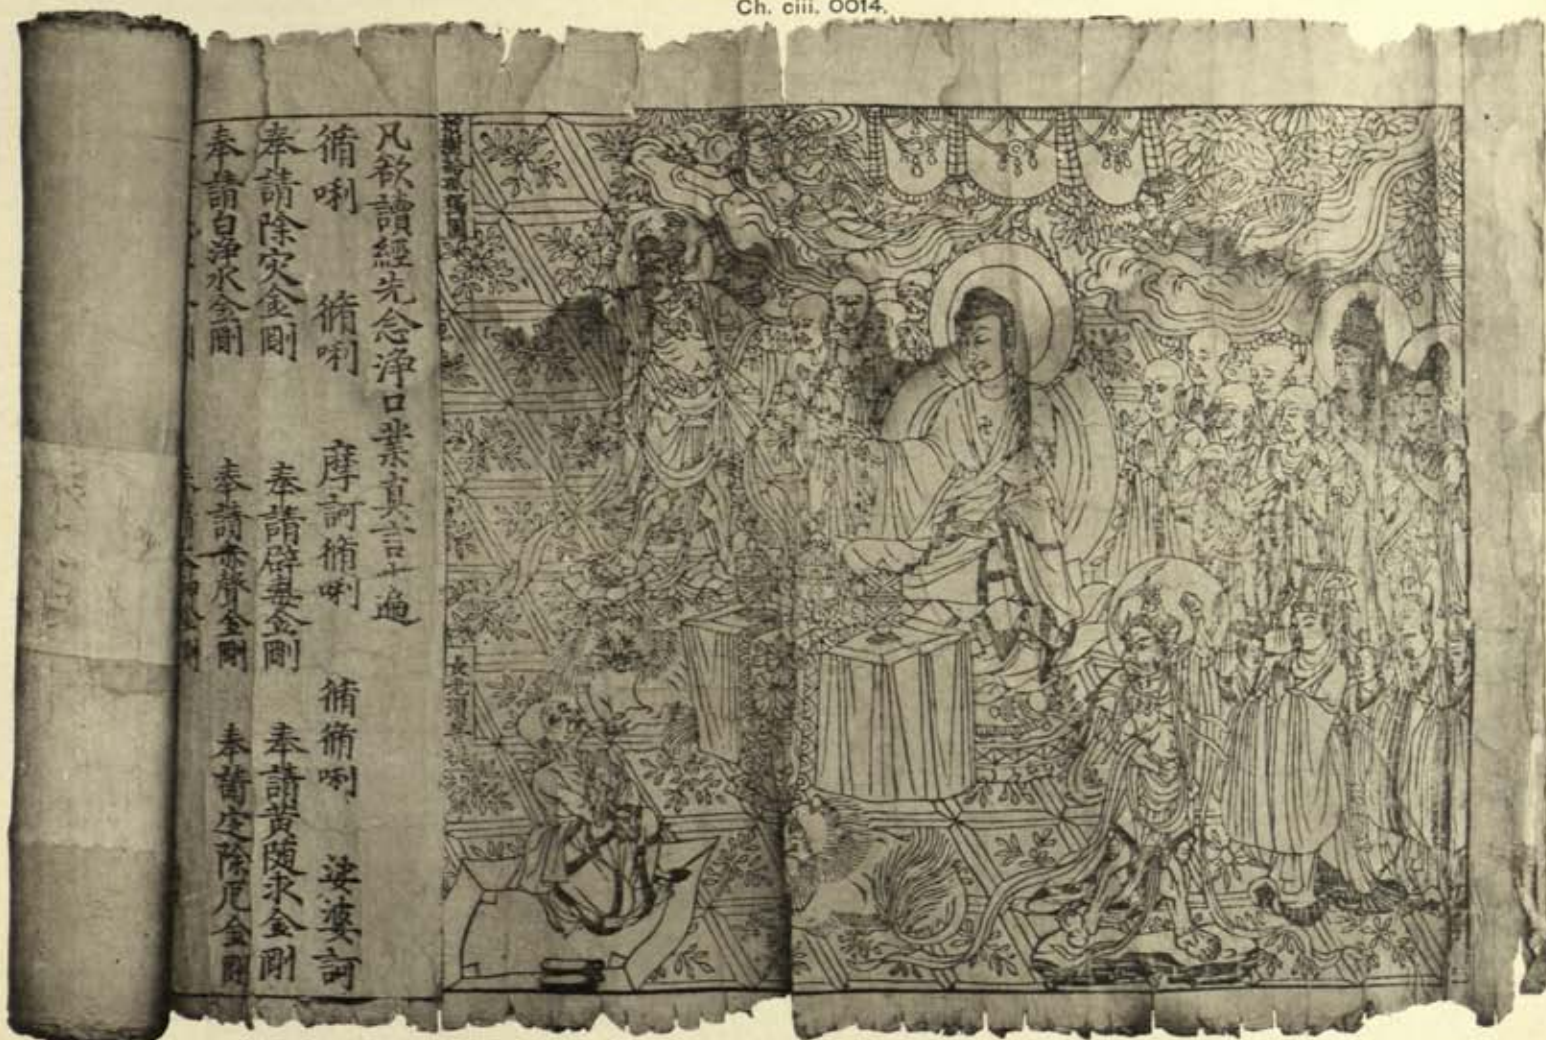 Ch. ciii. 0014.
祇樹給孤獨園
長老須菩提
凡欲讀經先念淨口業真言一遍
脩唎 脩唎 摩訶脩唎 脩脩唎 娑婆訶
奉請除灾金剛 奉請辟毒金剛 奉請黃隨求金剛
奉請白淨水金剛 奉請赤聲金剛 奉請定除厄金剛